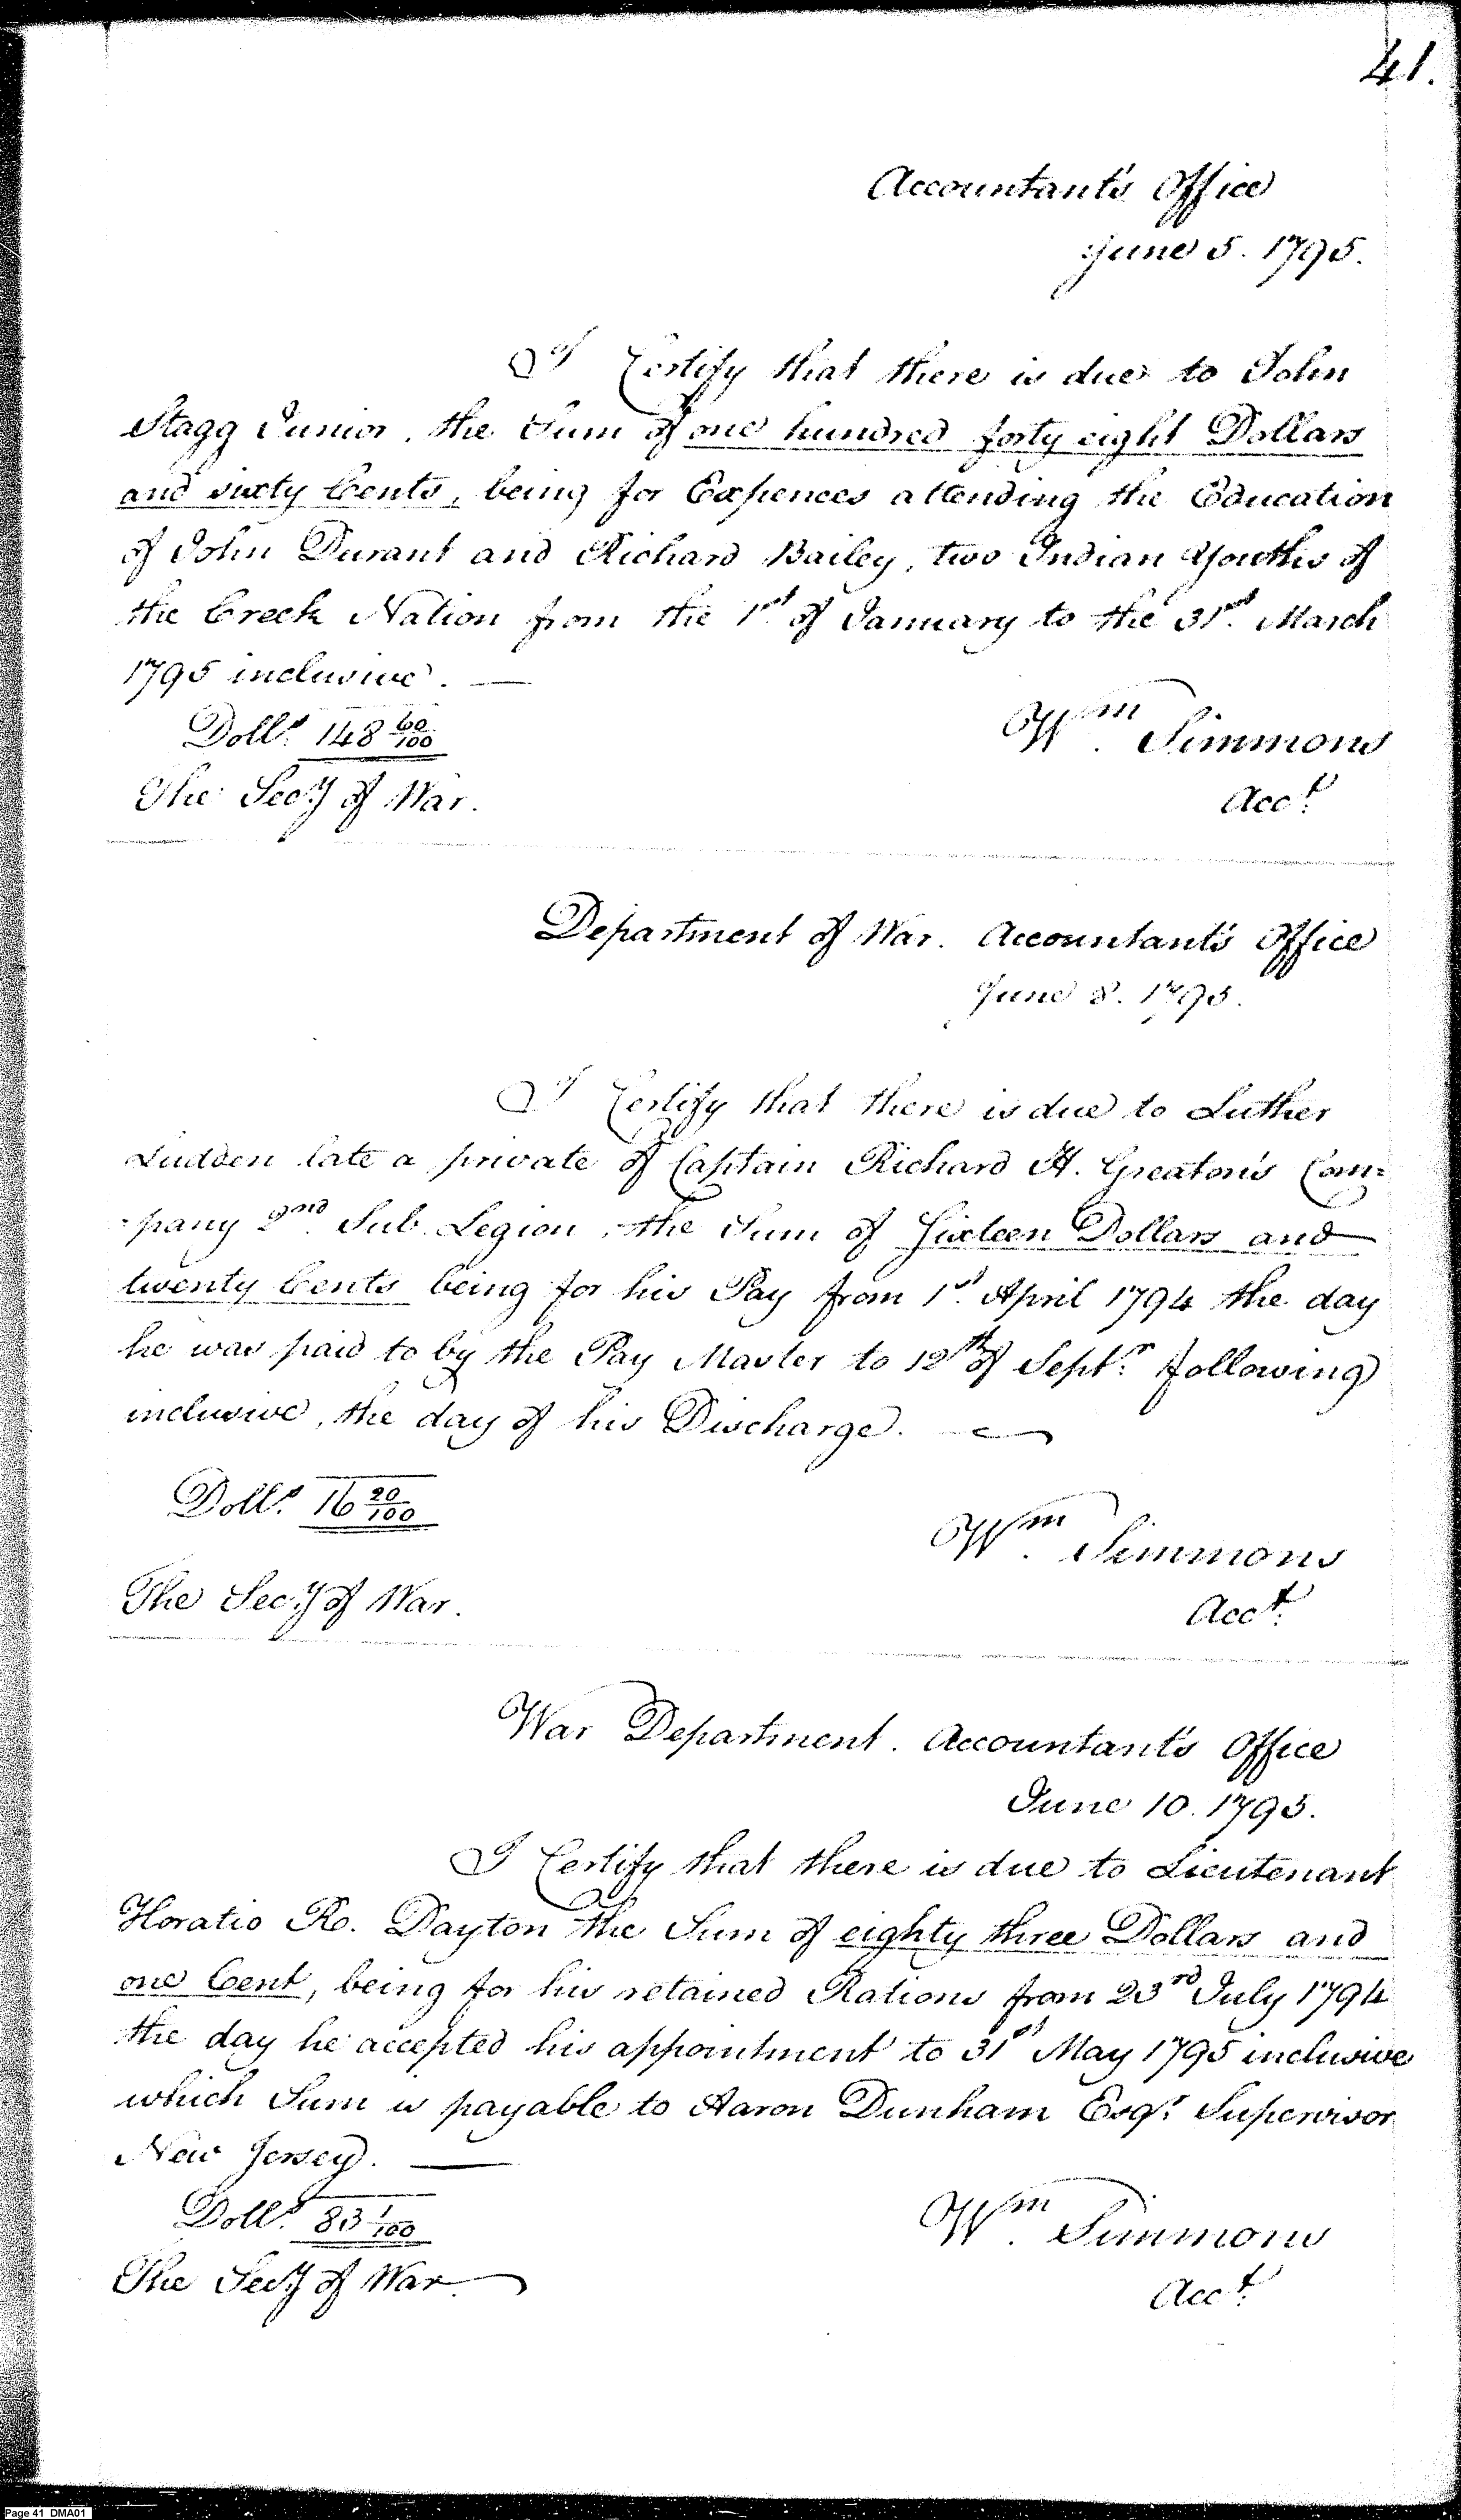 41.
Accountant's Office
June 5. 1795.
I Certify that there is due to John
Stagg Junior, the Sum of one hundred forty eight Dollars
and sixty Cents, being for Expences attending the Education
of John Durant and Richard Bailey, two Indian Youths of
the Creek Nation from the 1st. of January to the 31st. March
1795 inclusive. —
Dolls. 148 60/100
Wm. Simmons
The Secy. of War.
Acct.
Department of War. Accountant's Office
June 8. 1795.
I Certify that there is due to Luther
Ludden late a private of Captain Richard H. Greaton's Com=
=pany 2nd. Sub Legion, the Sum of Sixteen Dollars and
twenty Cents being for his Pay from 1st. April 1794 the day
he was paid to by the Pay Master to 12th of Septr. following
inclusive, the day of his Discharge. —
Dolls. 16 20/100
Wm. Simmons
The Secy. of War.
Acct.
War Department. Accountant's Office
June 10. 1795.
I Certify that there is due to Lieutenant
Horatio Ro. Dayton the Sum of eighty three Dollars and
one Cent, being for his retained Rations from 23rd July 1794
the day he accepted his appointment to 31st May 1795 inclusive
which Sum is payable to Aaron Dunham Esqr. Supervisor
New Jersey. —
Dolls. 83 1/100
Wm. Simmons
The Secy. of War.
Acct.
Page 41 DMA01